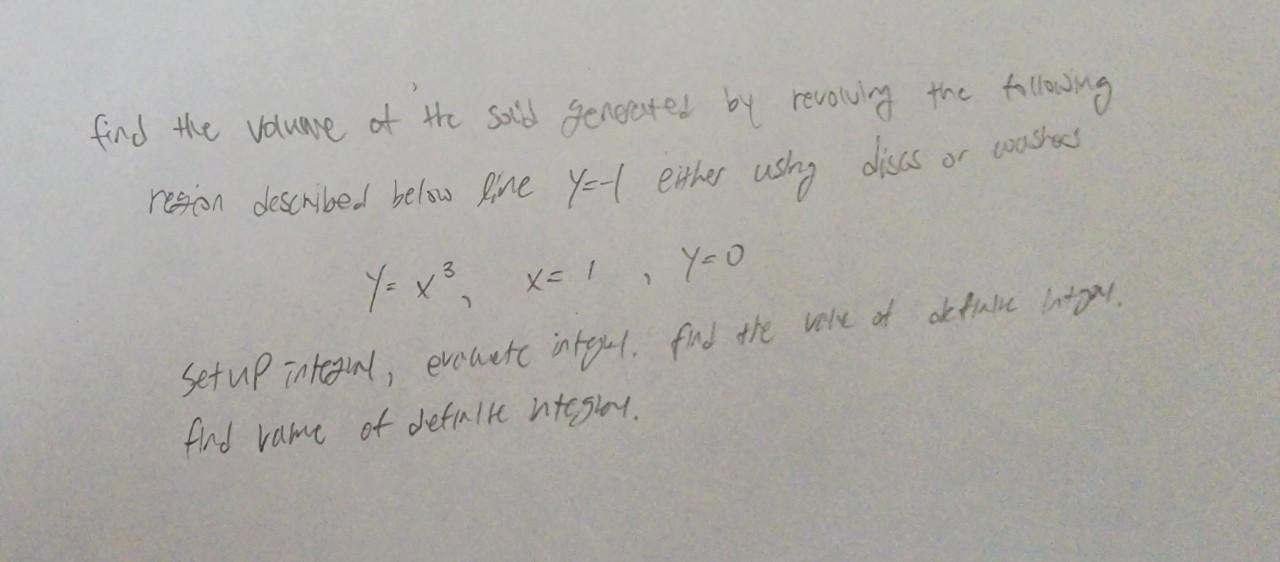 find the volume of the solid generated by revolving the following
region described below line y=-1 either using discs or washers
y=x³, x=1, y=0
setup integral, evaluate integral. find the value of definite integral.
find value of definite integral.